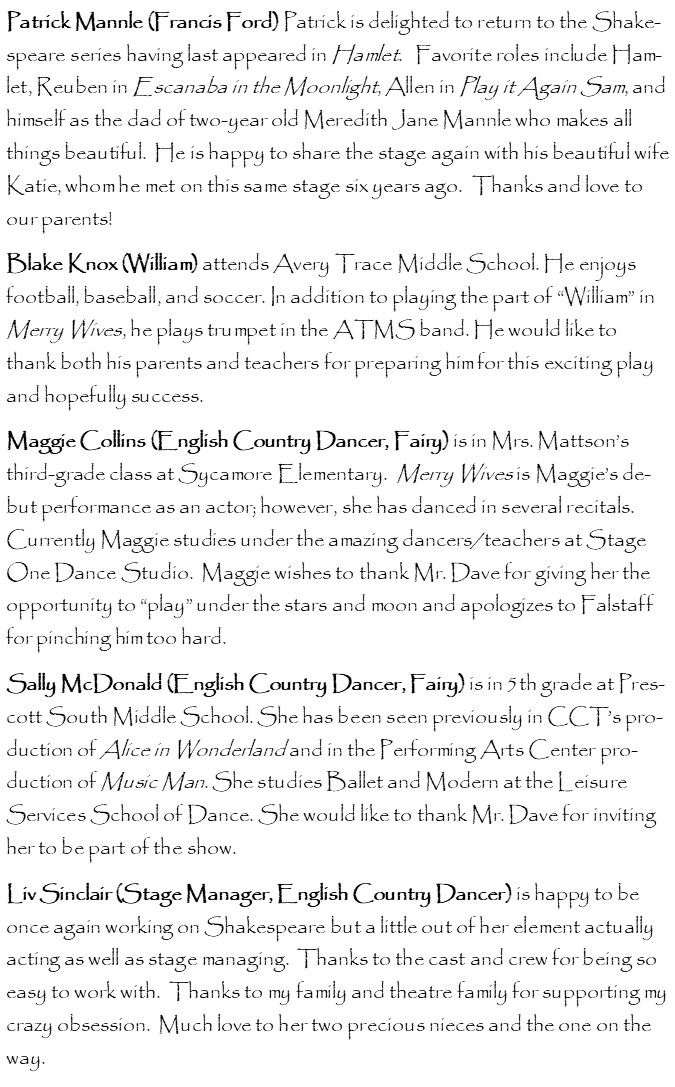 Patrick Mannle (Francis Ford) Patrick is delighted to return to the Shake-
speare series having last appeared in Hamlet.  Favorite roles include Ham-
let, Reuben in Escanaba in the Moonlight, Allen in Play it Again Sam, and
himself as the dad of two-year old Meredith Jane Mannle who makes all
things beautiful.  He is happy to share the stage again with his beautiful wife
Katie, whom he met on this same stage six years ago.  Thanks and love to
our parents!
Blake Knox (William) attends Avery Trace Middle School. He enjoys
football, baseball, and soccer. In addition to playing the part of “William” in
Merry Wives, he plays trumpet in the ATMS band. He would like to
thank both his parents and teachers for preparing him for this exciting play
and hopefully success.
Maggie Collins (English Country Dancer, Fairy) is in Mrs. Mattson’s
third-grade class at Sycamore Elementary.  Merry Wives is Maggie’s de-
but performance as an actor; however, she has danced in several recitals.
Currently Maggie studies under the amazing dancers/teachers at Stage
One Dance Studio.  Maggie wishes to thank Mr. Dave for giving her the
opportunity to “play” under the stars and moon and apologizes to Falstaff
for pinching him too hard.
Sally McDonald (English Country Dancer, Fairy) is in 5th grade at Pres-
cott South Middle School. She has been seen previously in CCT’s pro-
duction of Alice in Wonderland and in the Performing Arts Center pro-
duction of Music Man. She studies Ballet and Modern at the Leisure
Services School of Dance. She would like to thank Mr. Dave for inviting
her to be part of the show.
Liv Sinclair (Stage Manager, English Country Dancer) is happy to be
once again working on Shakespeare but a little out of her element actually
acting as well as stage managing.  Thanks to the cast and crew for being so
easy to work with.  Thanks to my family and theatre family for supporting my
crazy obsession.  Much love to her two precious nieces and the one on the
way.